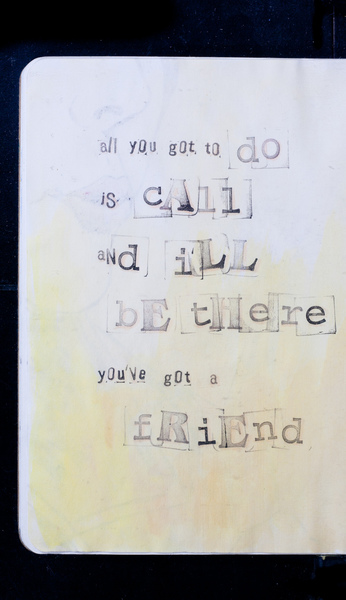 all you got to do
is cAll
aNd iLL
bE tHere
you've got a
fRiEnd